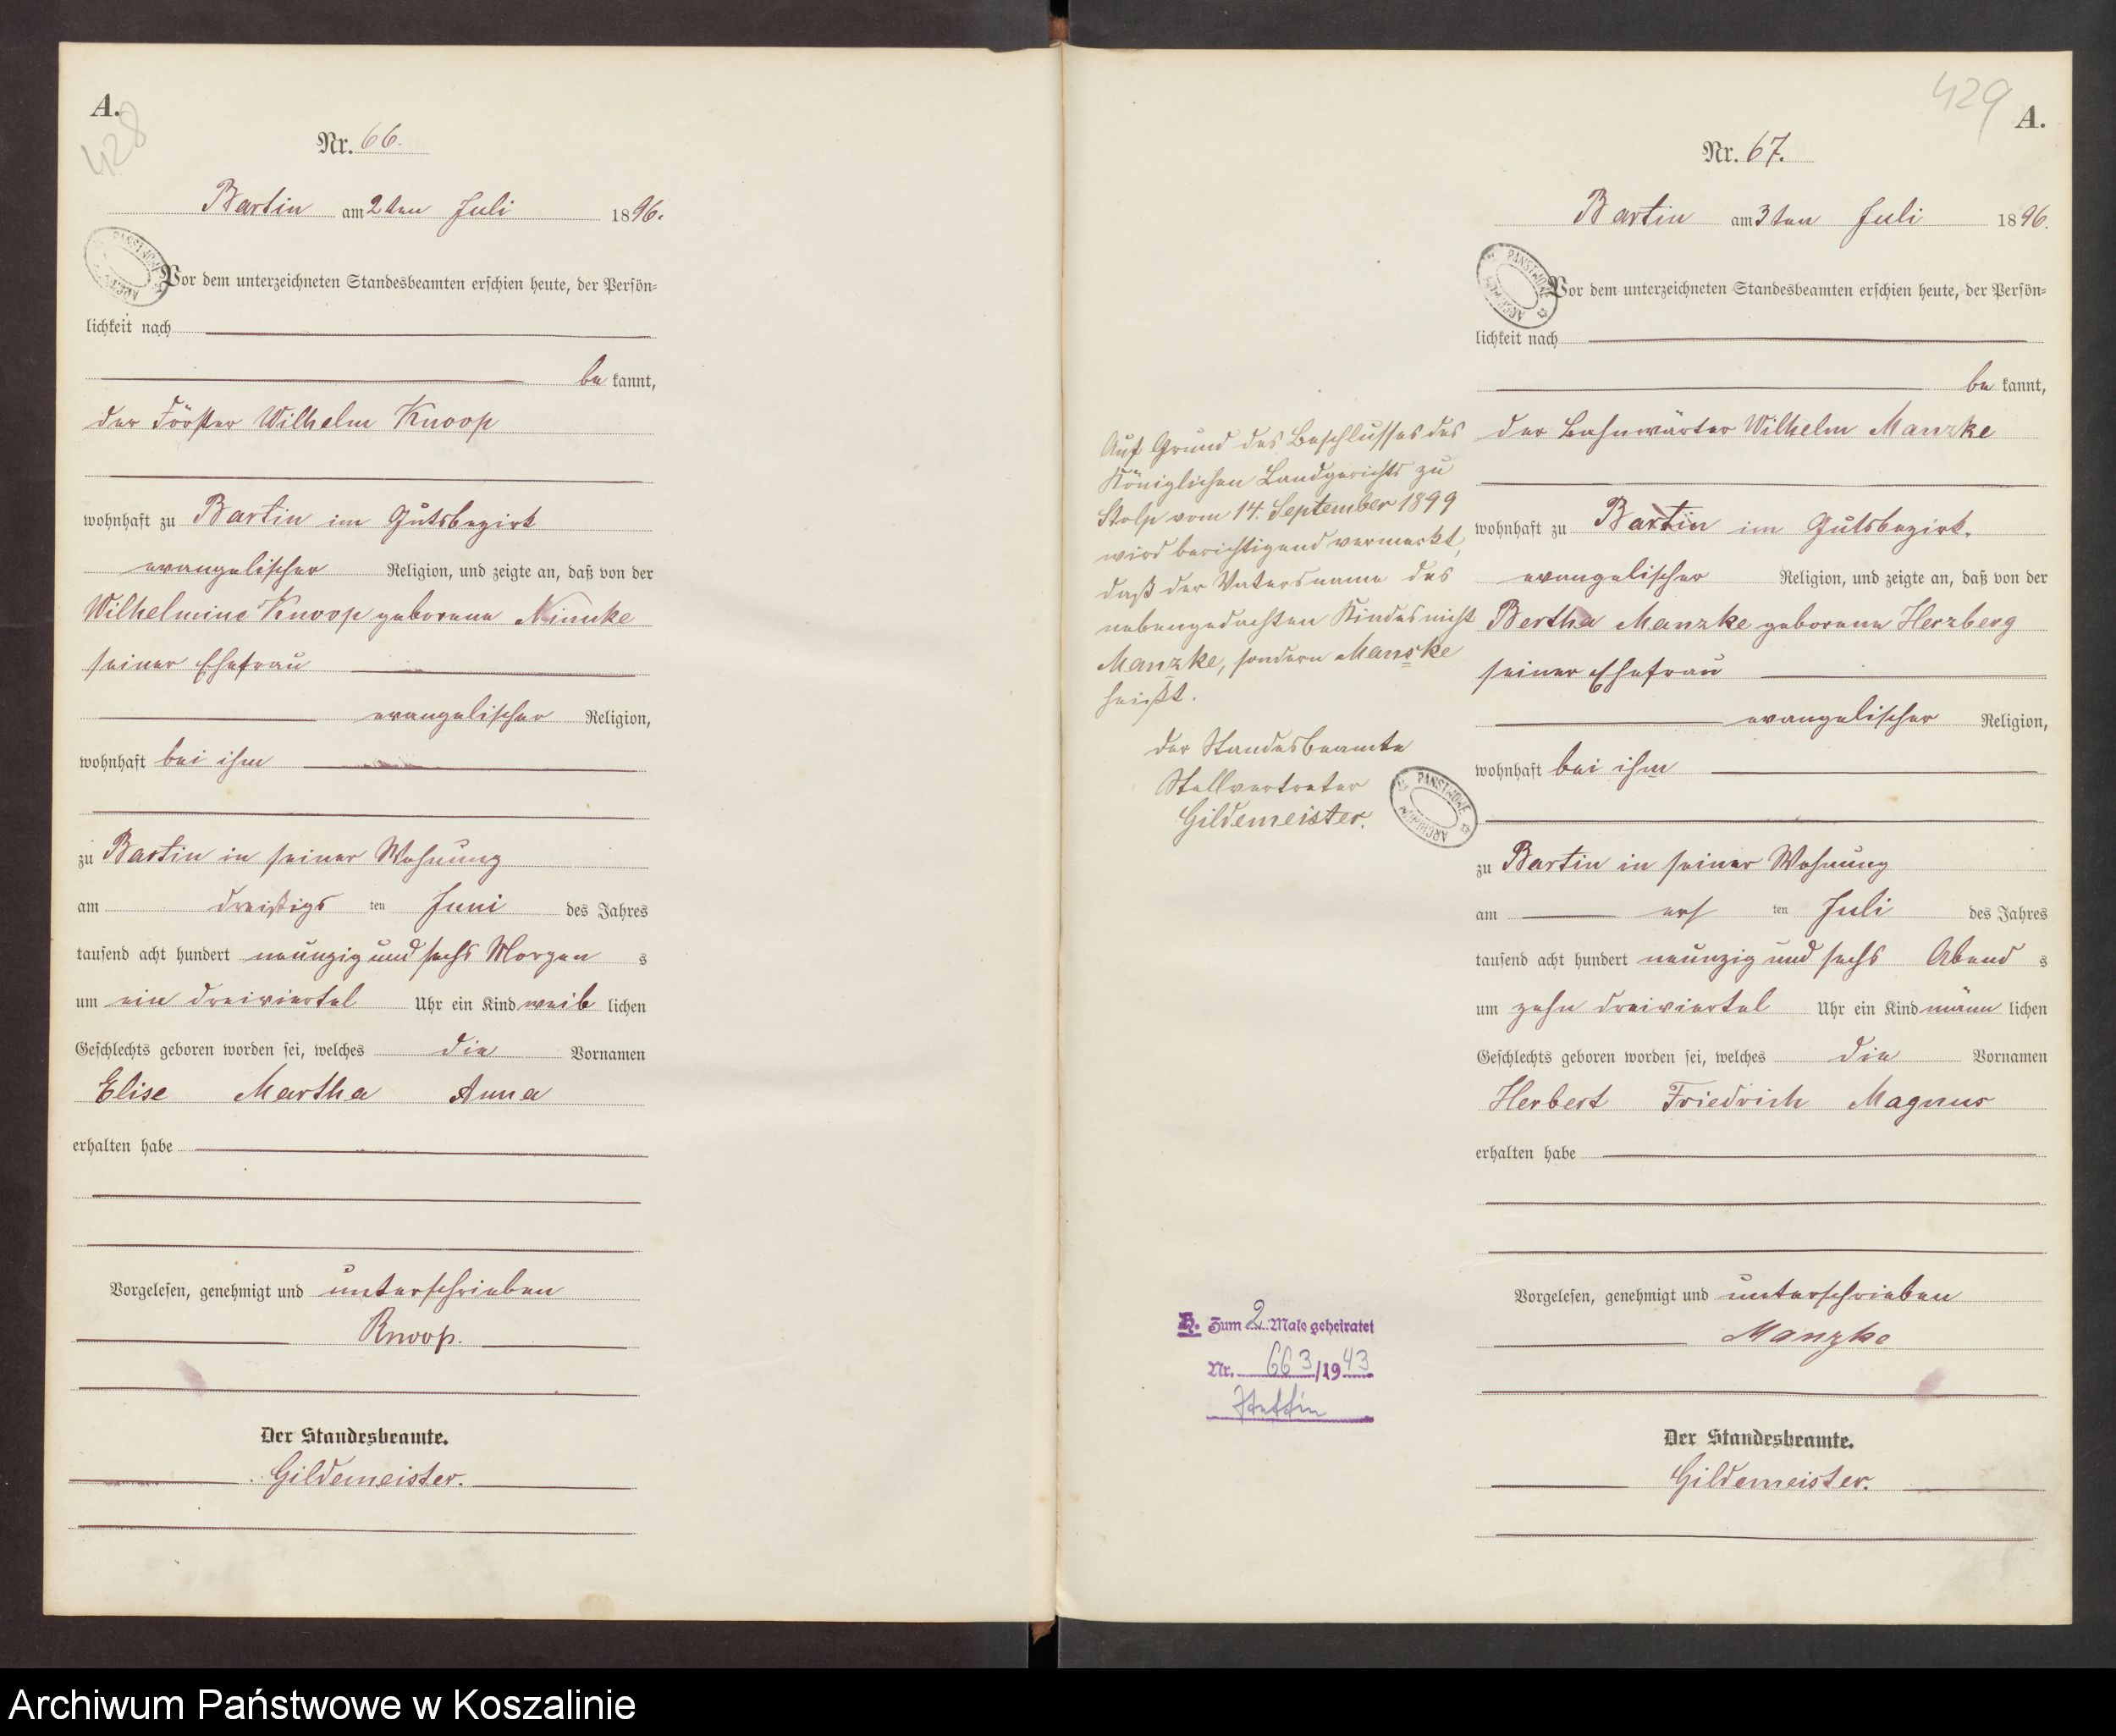 A.
428
Nr. 66.
Bartin am 2ten Juli 1896.
Vor dem unterzeichneten Standesbeamten erschien heute, der Persön=
lichkeit nach
be kannt,
der Förster Wilhelm Knoop
wohnhaft zu Bartin im Gutsbezirk
evangelischer Religion, und zeigte an, daß von der
Wilhelmine Knoop geborene
seiner Ehefrau
evangelischer Religion,
wohnhaft bei ihm
zu Bartin in seiner Wohnung
am dreißigs ten Juni des Jahres
tausend acht hundert neunzig und sechs Morgen s
um ein dreiviertel Uhr ein Kind weib lichen
Geschlechts geboren worden sei, welches die Vornamen
Elise Martha Anna
erhalten habe
Vorgelesen, genehmigt und unterschrieben
Knoop.
Der Standesbeamte.
Gildemeister.
429
A.
Nr. 67.
Bartin am 3ten Juli 1896.
PANSTWOWE ARCHIWUM
Vor dem unterzeichneten Standesbeamten erschien heute, der Persön=
lichkeit nach
be kannt,
der Bahnwärter Wilhelm Manzke
wohnhaft zu Bartin im Gutsbezirk.
evangelischer Religion, und zeigte an, daß von der
Bertha Manzke geborene Herzberg
seiner Ehefrau
evangelischer Religion,
wohnhaft bei ihm
zu Bartin in seiner Wohnung
am ers ten Juli des Jahres
tausend acht hundert neunzig und sechs Abend s
um zehn dreiviertel Uhr ein Kind männ lichen
Geschlechts geboren worden sei, welches die Vornamen
Herbert Friedrich Magnus
erhalten habe
Vorgelesen, genehmigt und unterschrieben
Manzke
Der Standesbeamte.
Gildemeister.
Auf Grund des Beschlusses des
Königlichen Landgerichts zu
Stolp vom 14. September 1899
wird berichtigend vermerkt,
daß der Vatersname des
nebengedachten Kindes nicht
Manzke, sondern Manske
heißt.
Der Standesbeamte
Stellvertreter
Gildemeister.
PANSTWOWE ARCHIWUM
H. Zum 2. Male geheiratet
Nr. 663/1943
Stettin
Archiwum Państwowe w Koszalinie